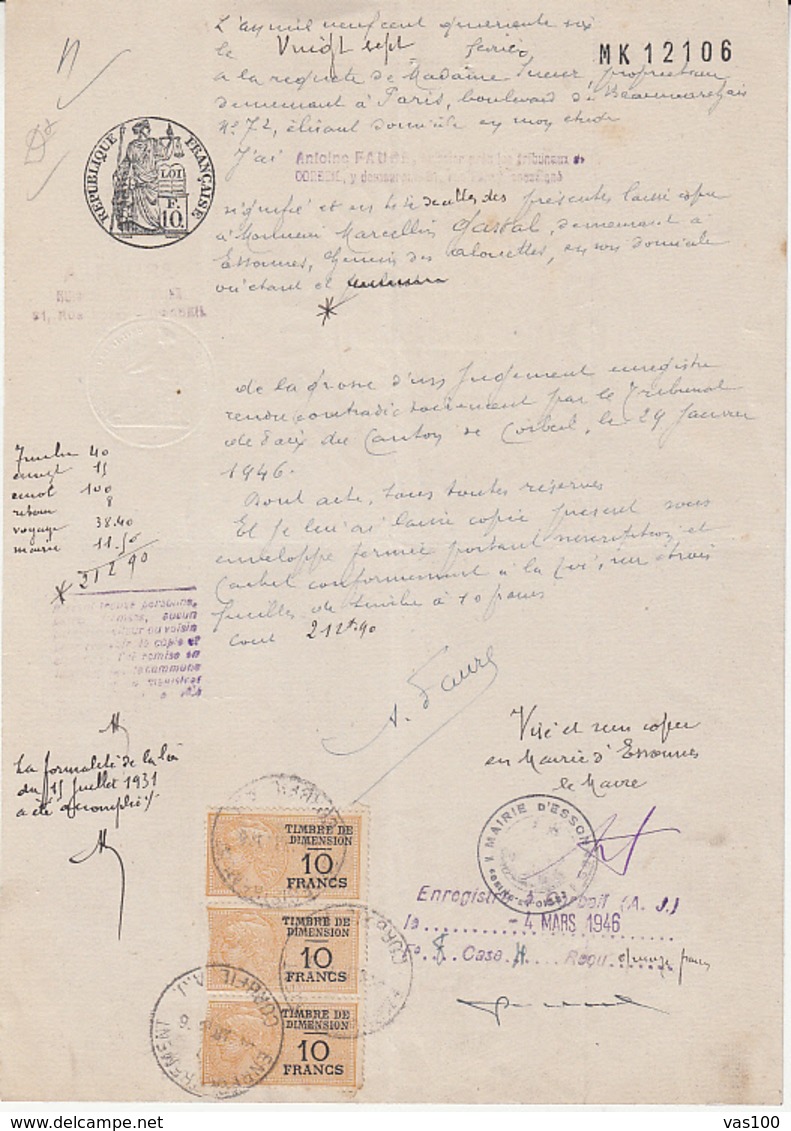 L'an mil neuf cent quarante six
le Vingt sept février
MK12106
a la requête de Madame Sueur, propriétaire
demeurant à Paris, boulevard de Beaumarchais
N° 72, élisant domicile en mon étude
RÉPUBLIQUE FRANÇAISE
LOI
F.
10
J'ai Antoine FAURE, près les tribunaux de
CORBEIL, y demeurant
signifié et en tête de celles des présentes laissé copie
à Monsieur Marcellin Gastal, demeurant à
Essonnes, chemin des alouettes, en son domicile
où étant et
*
de la grosse d'un jugement enregistré
rendu contradictoirement par le Tribunal
de Paix du Canton de Corbeil, le 29 Janvier
1946.
Dont acte, sous toutes réserves
Et je lui ai laissé copie présent sous
enveloppe fermée portant suscription et
cachet conformément à la loi, sur trois
feuilles de timbre à 10 francs
Cout 212.90
Timbre 40
enregt 15
100
retour 8
voyage 38.40
mairie 11.50
* 212.90
personne,
aucun
ou voisin
la copie et
remise en
A. Faure
Visé et reçu copie
en Mairie d'Essonnes
le Maire
La formalité de la loi
du 15 juillet 1931
a été accomplie
MAIRIE D'ESSONNES
TIMBRE DE
DIMENSION
10
FRANCS
TIMBRE DE
DIMENSION
10
FRANCS
TIMBRE DE
DIMENSION
10
FRANCS
CORBEIL A.J.
ENREGISTREMENT
Enregistré à Corbeil (A. J.)
le - 4 MARS 1946
Fo 8 Case 4 Reçu quinze francs
vas100